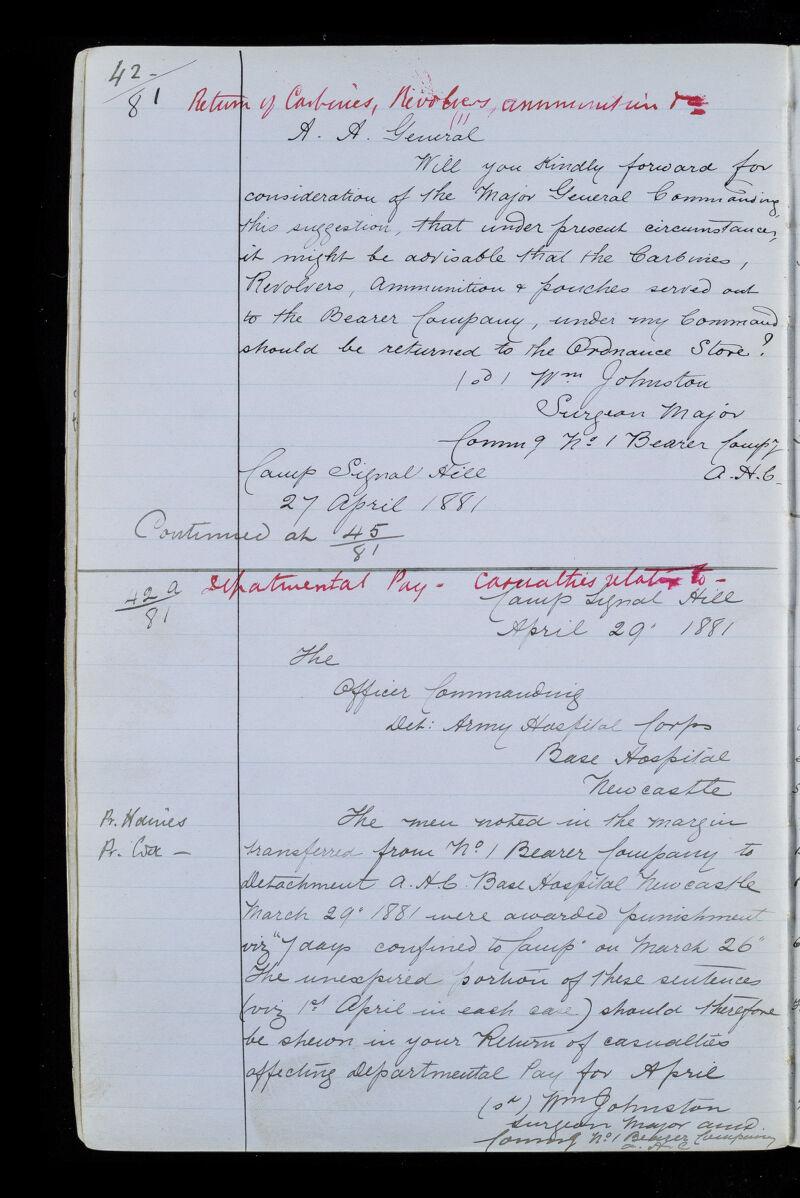 42
81
Return of Carbines, Revolvers, ammunition &c
(11)
A. A. General
Will you kindly forward for
consideration of the Major General Commanding,
this suggestion, that under present circumstances,
it might be advisable that the Carbines,
Revolvers, Ammunition & pouches served out
to the Bearer Company, under my Command
should be returned to the Ordnance Store?
(sd) Wm Johnston
Surgeon Major
Commg No 1 Bearer Compy
A.H.C.
Camp Signal Hill
27 April 1881
Continued at 45
81
42a
81
Depatmental Pay - Casualties relative to -
Camp Signal Hill
April 29. 1881
The
Officer Commanding
Det: Army Hospital Corps
Base Hospital
Newcastle
Pr. Haines
Pr. Cox -
The men noted in the margin
transferred from No 1 Bearer Company to
Detachment A.H.C. Base Hospital Newcastle
March 29. 1881 were awarded punishment
viz "7 days confined to Camp" on March 26"
The unexpired portion of these sentences
(viz 1st April in each case) should therefore
be shewn in your Return of casualties
affecting Departmental Pay for April
(sd) Wm Johnston
Surgeon Major AMD.
Commg No 1 Bearer Company
A.H.C